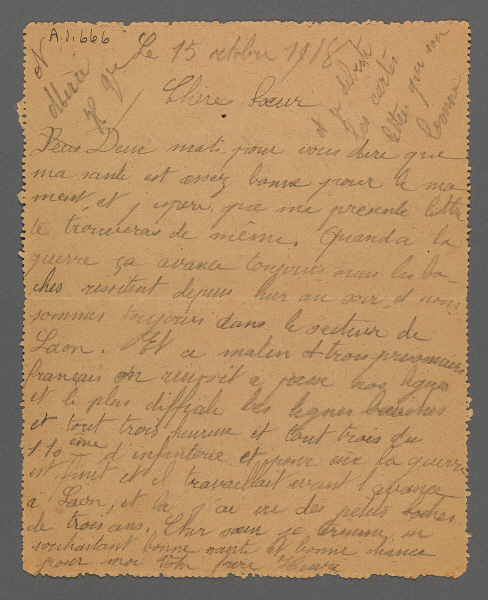 A.1.666
Le 15 octobre 1918
Chère Sœur
Deux mots pour vous dire que
ma santé est assez bonne pour le mo
ment, et j espere que ma presente lettre
te trouveras de même. Quand a la
guerre ça avance toujours mais les bo-
ches resistent depuis hier au soir, et nous
sommes toujours dans le secteur de
Laon. Et ce matin trois prisonniers
français on reussit a passer nos lignes
et le plus difficile les lignes boches
et tout trois heureux et tout trois du
110 eme d infanterie et pour eux la guerre
est finit et il travaillait avant l avance
a Laon, et la j ai vu des petits boches
de trois ans. Cher sœur je termine en
souhaitant bonne santé et bonne chance
pour moi ton frère